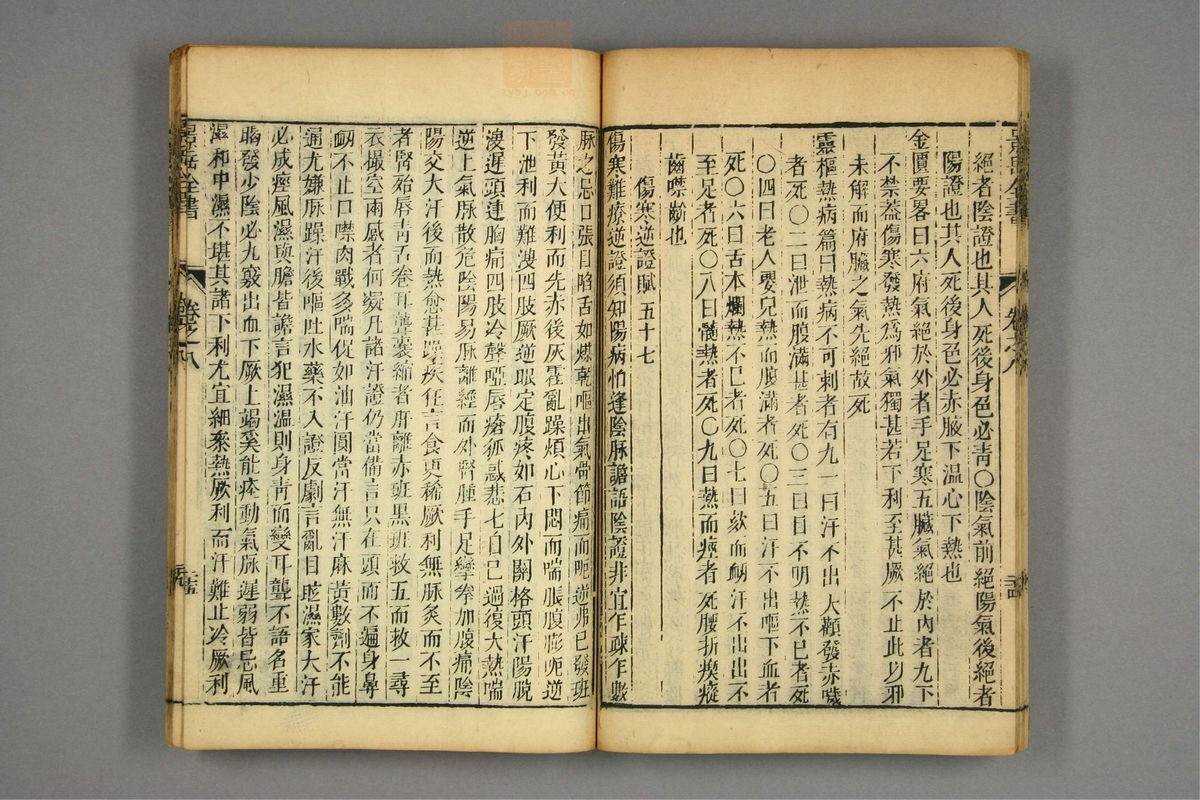 絕者陰證也其人死後身色必青○陰氣前絕陽氣後絕者
陽證也其人死後身色必赤腋下溫心下熱也
金匱要畧曰六府氣絕於外者手足寒五臟氣絕於內者九下
不禁蓋傷寒發熱爲邪氣獨甚若下利至甚厥不止此以邪
未解而府臟之氣先絕故死
靈樞熱病篇曰熱病不可刺者有九一曰汗不出大顴發赤噦
者死○二曰泄而腹滿甚者死○三曰目不明熱不已者死
○四曰老人嬰兒熱而腹滿者死○五曰汗不出嘔下血者
死○六曰舌本爛熱不已者死○七曰欬而衂汗不出出不
至足者死○八曰髓熱者死○九曰熱而痙者死腰折瘈瘲
齒噤齘也
傷寒逆證賦 五十七
傷寒難療逆證須知陽病怕逢陰脉譫語陰證非宜乍疎乍數
脉之忌口張目陷舌如煤乾嘔出氣骨節痛而呃逆弗已發班
發黃大便利而先赤後灰霍亂躁煩心下悶而喘脹腹膨呃逆
下泄利而難溲四肢厥逆眼定腹疼如石內外關格頭汗陽脫
溲遲頭連胸痛四肢冷聲啞唇瘡狐惑悲七日已過復大熱喘
逆上氣脉散危陰陽易脉離經而外腎腫手足攣拳加腹痛陰
陽交大汗後而熱愈甚躁疾狂言食更稀厥利無脉灸而不至
者腎殆唇青舌卷耳聾囊縮者肝離赤班黑班救五而救一尋
衣撮空兩感者何疑凡諸汗證仍當備言只在頭而不遍身鼻
衂不止口噤肉戰多喘促如油汗圓嘗汗無汗麻黃數劑不能
通尤嫌脉躁汗後嘔吐水藥不入證反劇言亂目眩濕家大汗
必成痙風濕與膽皆譫言犯濕溫則身青而變耳聾不語名重
暍發少陰必九竅出血下厥上竭奚能痊動氣脉遲弱皆忌風
濕和中濕不堪其諸下利尤宜細察熱厥利而汗難止冷厥利
景岳全書
卷之八